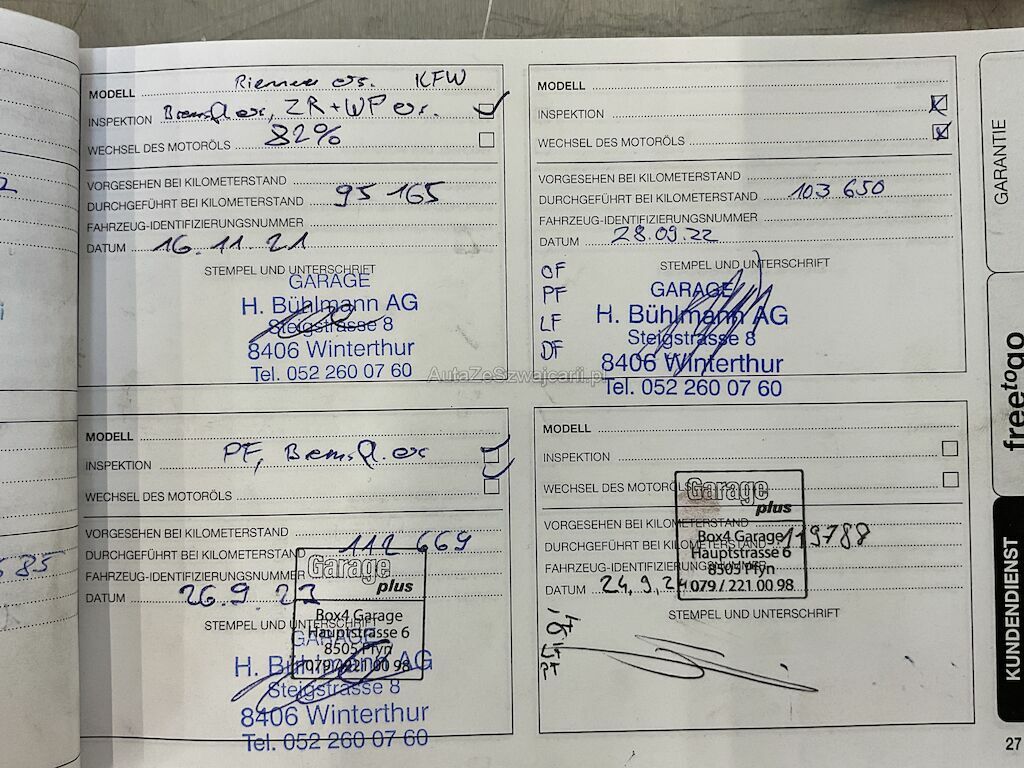 MODELL Riemen ers. KFW
INSPEKTION Bremsfl. ers, ZR+WP ers.
WECHSEL DES MOTORÖLS 82%
VORGESEHEN BEI KILOMETERSTAND
DURCHGEFÜHRT BEI KILOMETERSTAND 95 165
FAHRZEUG-IDENTIFIZIERUNGSNUMMER
DATUM 16.11.21
STEMPEL UND UNTERSCHRIFT
GARAGE
H. Bühlmann AG
Steigstrasse 8
8406 Winterthur
Tel. 052 260 07 60
MODELL
INSPEKTION
WECHSEL DES MOTORÖLS
VORGESEHEN BEI KILOMETERSTAND
DURCHGEFÜHRT BEI KILOMETERSTAND 103 650
FAHRZEUG-IDENTIFIZIERUNGSNUMMER
DATUM 28.09.22
STEMPEL UND UNTERSCHRIFT
OF
PF
LF
DF
GARAGE
H. Bühlmann AG
Steigstrasse 8
8406 Winterthur
Tel. 052 260 07 60
AutaZeSzwajcarii.pl
MODELL
INSPEKTION PF, Bremsfl. ers
WECHSEL DES MOTORÖLS
VORGESEHEN BEI KILOMETERSTAND
DURCHGEFÜHRT BEI KILOMETERSTAND 112 669
FAHRZEUG-IDENTIFIZIERUNGSNUMMER
DATUM 26.9.23
STEMPEL UND UNTERSCHRIFT
Garage
plus
Box4 Garage
Hauptstrasse 6
8505 Pfyn
079 / 221 00 98
GARAGE
H. Bühlmann AG
Steigstrasse 8
8406 Winterthur
Tel. 052 260 07 60
MODELL
INSPEKTION
WECHSEL DES MOTORÖLS
VORGESEHEN BEI KILOMETERSTAND
DURCHGEFÜHRT BEI KILOMETERSTAND 119788
FAHRZEUG-IDENTIFIZIERUNGSNUMMER
DATUM 24.9.24
STEMPEL UND UNTERSCHRIFT
Garage
plus
Box4 Garage
Hauptstrasse 6
8505 Pfyn
079 / 221 00 98
GARANTIE
freetogo
KUNDENDIENST
27